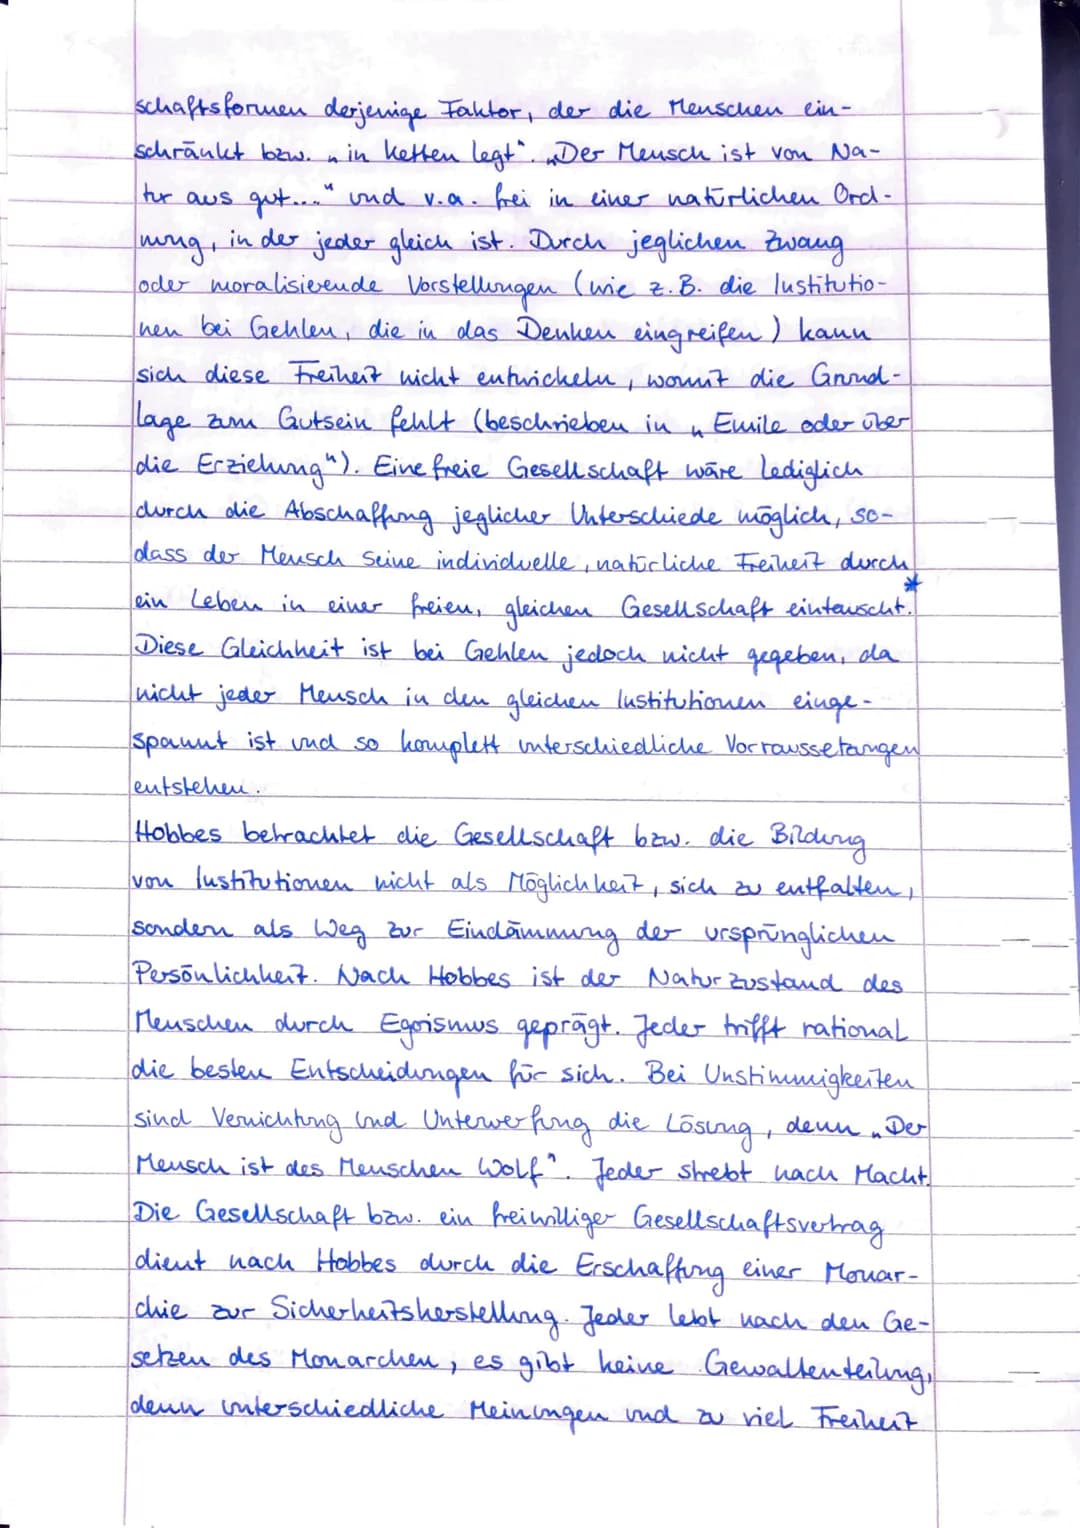 schaftsformen derjenige Faktor, der die Menschen ein-
schränkt bzw. „in Ketten legt". „Der Mensch ist von Na-
tur aus gut..." und v.a. frei in einer natürlichen Ord-
nung, in der jeder gleich ist. Durch jeglichen Zwang
oder moralisierende Vorstellungen (wie z.B. die Institutio-
nen bei Gehlen, die in das Denken eingreifen) kann
sich diese Freiheit nicht entwickeln, womit die Grund-
lage zum Gutsein fehlt (beschrieben in „Emile oder über
die Erziehung"). Eine freie Gesellschaft wäre lediglich
durch die Abschaffung jeglicher Unterschiede möglich, so-
dass der Mensch seine individuelle, natürliche Freiheit durch
ein Leben in einer freien, gleichen Gesellschaft eintauscht.*
Diese Gleichheit ist bei Gehlen jedoch nicht gegeben, da
nicht jeder Mensch in den gleichen Institutionen einge-
spannt ist und so komplett unterschiedliche Vorraussetzungen
entstehen.
Hobbes betrachtet die Gesellschaft bzw. die Bildung
von Institutionen nicht als Möglichkeit, sich zu entfalten,
sondern als Weg zur Eindämmung der ursprünglichen
Persönlichkeit. Nach Hobbes ist der Naturzustand des
Menschen durch Egoismus geprägt. Jeder trifft rational
die besten Entscheidungen für sich. Bei Unstimmigkeiten
sind Vernichtung und Unterwerfung die Lösung, denn „Der
Mensch ist des Menschen Wolf". Jeder strebt nach Macht.
Die Gesellschaft bzw. ein freiwilliger Gesellschaftsvertrag
dient nach Hobbes durch die Erschaffung einer Monar-
chie zur Sicherheitsherstellung. Jeder lebt nach den Ge-
setzen des Monarchen, es gibt keine Gewaltenteilung,
denn unterschiedliche Meinungen und zu viel Freiheit